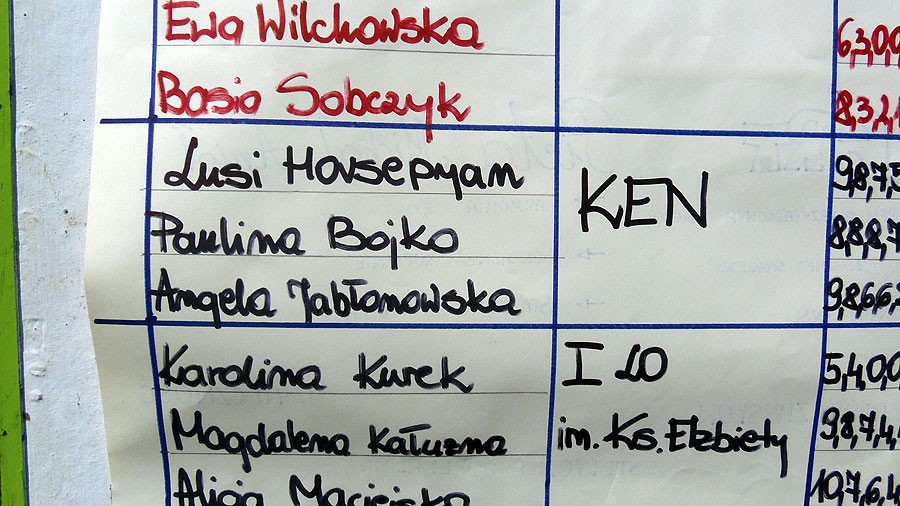 Ewa Wilchowska 6,3,0,0
Basia Sobczyk 8,3,2,
Lusi Hovsepyan KEN 9,8,7,5
Paulina Bojko 8,8,8,7
Angela Jabłonowska 9,8,6,6,
Karolina Kurek I LO 5,4,0,0
Magdalena Kałuzna im. Ks. Elżbiety 9,8,7,4,
Alicja Maciejska 10,7,6,4